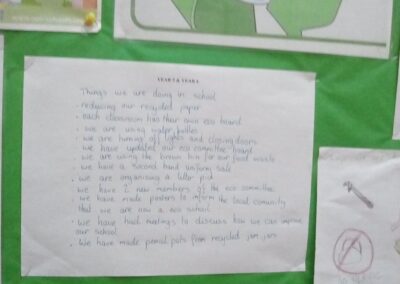 YEAR 5 & YEAR 6
Things we are doing in school
• reducing our recycled paper
• each classroom has their own eco board
• we are using water bottles
• we are turning off lights and closing doors
• we have updated our eco committee board
• we are using the brown bin for our food waste
• we have a second hand uniform sale
• we are organising a litter pick
we have 2 new members of the eco committee
• we have made posters to inform the local community
that we are now a eco school
• we have had meetings to discuss how we can improve
our school
• We have made pencil pots from recycled jam jars